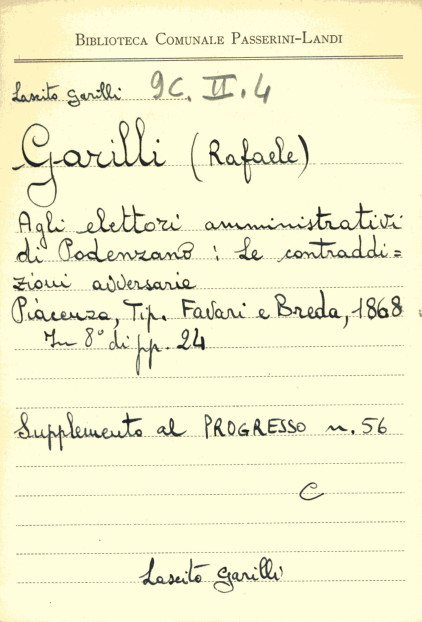 BIBLIOTECA COMUNALE PASSERINI-LANDI
Lascito Garilli 9C. II. 4
Garilli (Rafaele)
Agli elettori amministrativi
di Podenzano: Le contraddi=
zioni avversarie
Piacenza, Tip. Favari e Breda, 1868
In 8° di pp. 24
Supplemento al PROGRESSO n. 56
C
Lascito Garilli